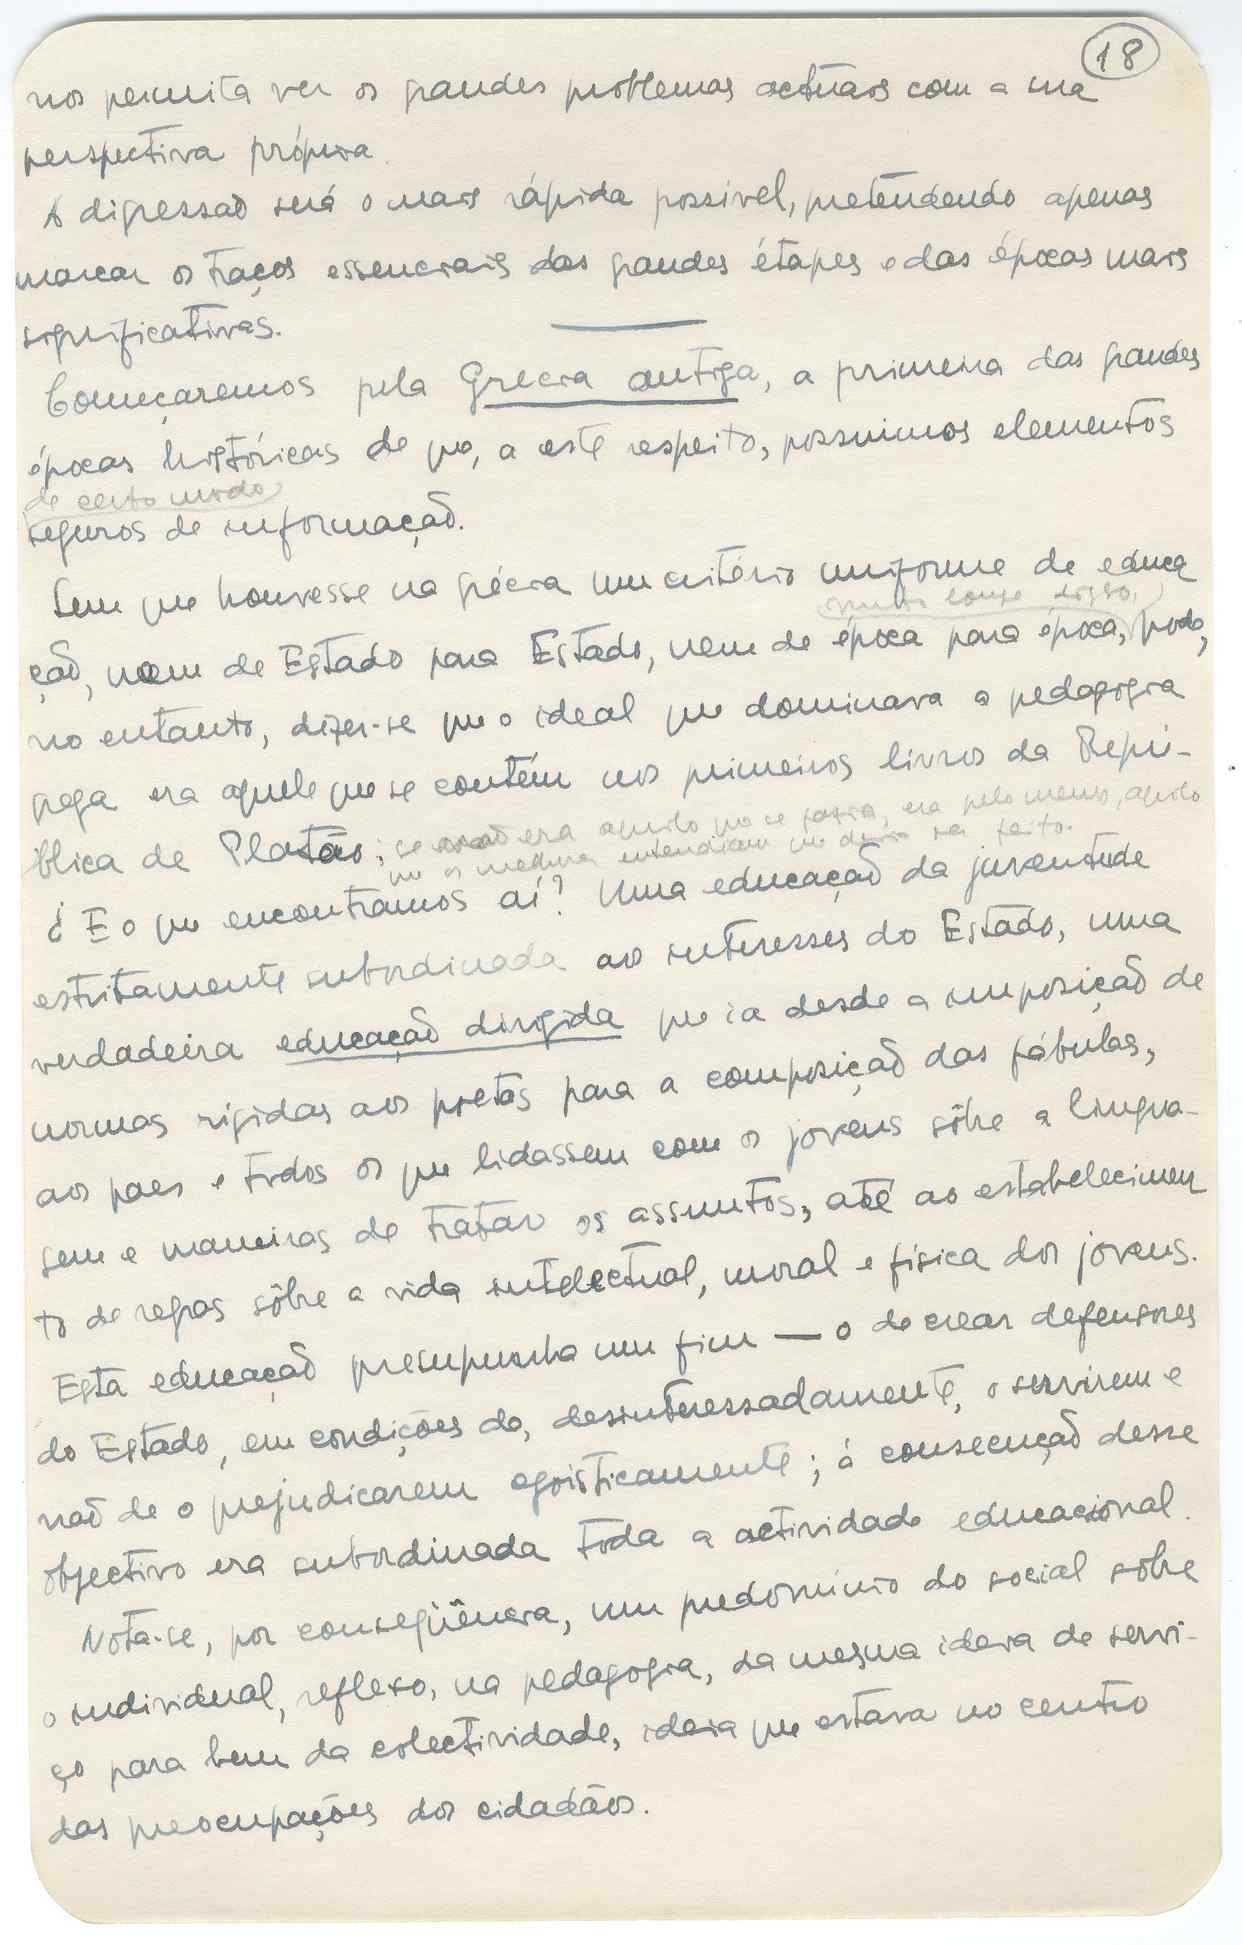 18
nos permita ver os grandes problemas actuais com a sua
perspectiva própria.
A digressaõ será o mais rápida possível, pretendendo apenas
marcar os traços essenciais das grandes étapes e das épocas mais
significativas.
Começaremos pela Grecia antiga, a primeira das grandes
épocas históricas de que, a este respeito, possuimos elementos
de certo modo
seguros de informaçaõ.
Sem que houvesse na Grécia um critério uniforme de educa
muito longe disso,
çaõ, nem de Estado para Estado, nem de época para época, pode,
no entanto, dizer-se que o ideal que dominava a pedagogia
grega era aquele que se contém nos primeiros livros da Repú-
blica de Platão; se naõ era aquilo que se fazia, era pelo menos, aquilo
que os melhores entendiam que devia ser feito.
¿E o que encontramos aí? Uma educaçaõ da juventude
estritamente subordinada aos interesses do Estado, uma
verdadeira educaçaõ dirigida que ia desde a imposiçaõ de
normas rígidas aos poetas para a composiçaõ das fábulas,
aos paes e todos os que lidassem com os jovens sôbre a lingua-
gem e maneiras de tratar os assuntos, até ao estabelecimen
to de regras sôbre a vida intelectual, moral e física dos jovens.
Esta educaçaõ presupunha um fim — o de crear defensores
do Estado, em condições de, desinteressadamente, o servirem e
naõ de o prejudicarem egoisticamente; á consecuçaõ desse
objectivo era subordinada toda a actividade educacional.
Nota-se, por conseqüência, um predomínio do social sôbre
o individual, reflexo, na pedagogia, da mesma ideia de servi-
ço para bem da colectividade, ideia que estava no centro
das preocupações dos cidadãos.